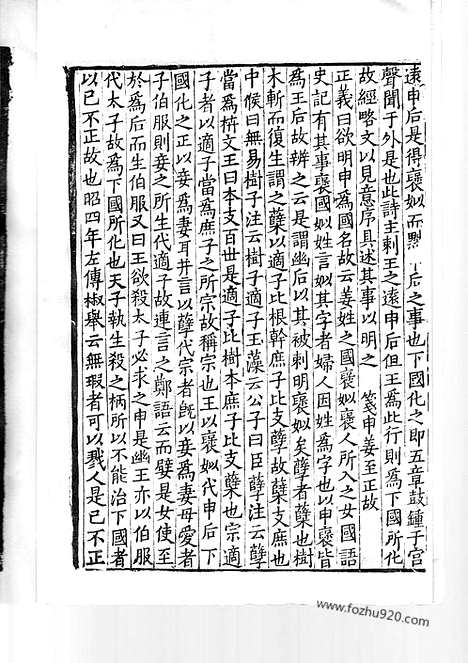 遠申后是得襃姒而黜申后之事也下國化之即五章鼓鍾于宫
聲聞于外是也此詩主刺王之遠申后但王為此行則為下國所化
故經略文以見意序具述其事以明之 箋申姜至正故
正義曰欲明申為國名故云姜姓之國襃姒襃人所入之女國語
史記有其事襃國姒姓言姒其字者婦人因姓為字也以申襃皆
為王后故辨之云是謂幽后以其被刺明是襃姒矣孽者蘖也樹
木斬而復生謂之蘖以適子比根幹庶子比支孽故蘖支庶也
中候曰無易樹子注云樹子適子玉藻云公子曰臣孽注云孽
當為枿文王曰本支百世是適子比樹本庶子比支蘖也宗適
子者以適子當為庶子之所宗故稱宗也王以襃姒代申后下
國化之正以妾為妻耳并言以孽代宗者既以妾為妻母愛者
子伯服則妾之所生代適子故連言之鄭語云而嬖是女使至
於為后而生伯服又曰王欲殺太子必求之申是幽王亦以伯服
代太子故為下國所化也天子執生殺之柄所以不能治下國者
以己不正故也昭四年左傳椒舉云無瑕者可以戮人是己不正
www.fozhu920.com